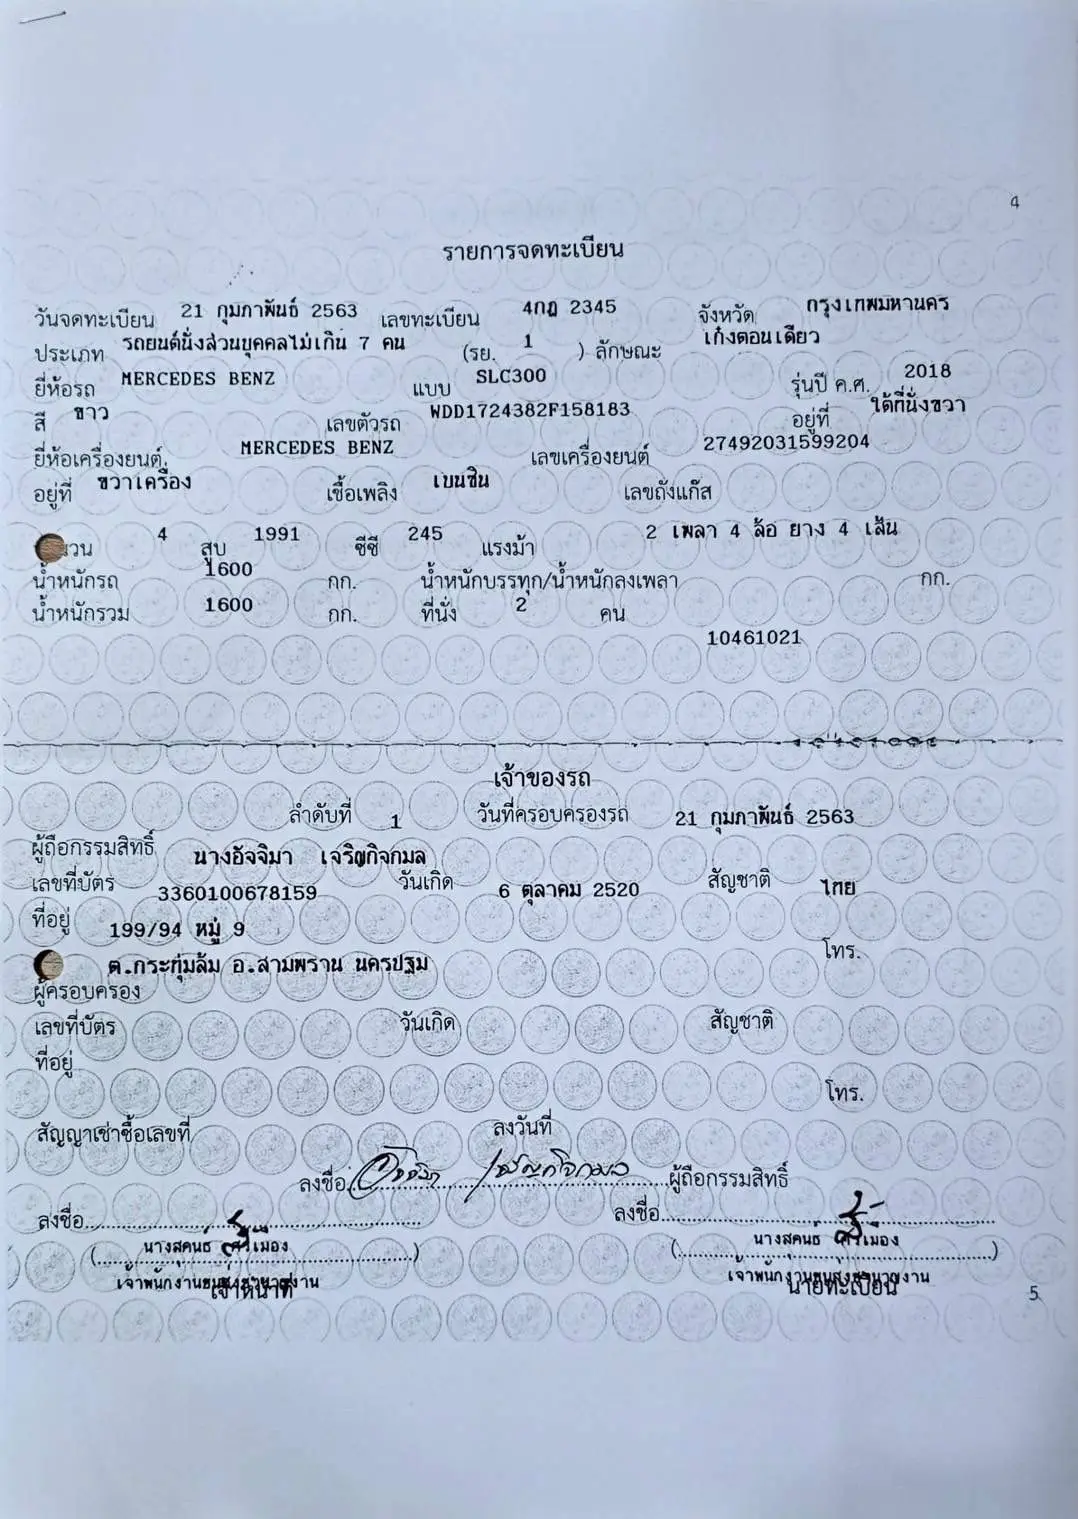 4
รายการจดทะเบียน
วันจดทะเบียน 21 กุมภาพันธ์ 2563 เลขทะเบียน 4กฎ 2345 จังหวัด กรุงเทพมหานคร
ประเภท รถยนต์นั่งส่วนบุคคลไม่เกิน 7 คน (รย. 1 ) ลักษณะ เก๋งตอนเดียว
ยี่ห้อรถ MERCEDES BENZ แบบ SLC300 รุ่นปี ค.ศ. 2018
สี ขาว เลขตัวรถ WDD1724382F158183 อยู่ที่ ใต้ที่นั่งขวา
ยี่ห้อเครื่องยนต์ MERCEDES BENZ เลขเครื่องยนต์ 27492031599204
อยู่ที่ ขวาเครื่อง เชื้อเพลิง เบนซิน เลขถังแก๊ส
นวน 4 สูบ 1991 ซีซี 245 แรงม้า 2 เพลา 4 ล้อ ยาง 4 เส้น
น้ำหนักรถ 1600 กก. น้ำหนักบรรทุก/น้ำหนักลงเพลา กก.
น้ำหนักรวม 1600 กก. ที่นั่ง 2 คน
10461021
เจ้าของรถ
ลำดับที่ 1 วันที่ครอบครองรถ 21 กุมภาพันธ์ 2563
ผู้ถือกรรมสิทธิ์ นางอัจจิมา เจริญกิจกมล
เลขที่บัตร 3360100678159 วันเกิด 6 ตุลาคม 2520 สัญชาติ ไทย
ที่อยู่ 199/94 หมู่ 9
โทร.
ต.กระทุ่มล้ม อ.สามพราน นครปฐม
ผู้ครอบครอง
เลขที่บัตร วันเกิด สัญชาติ
ที่อยู่
โทร.
สัญญาเช่าซื้อเลขที่ ลงวันที่
ลงชื่อ อัจจิมา เจริญกิจกมล ผู้ถือกรรมสิทธิ์
ลงชื่อ ลงชื่อ
(นางสุคนธ์ ศรีเมือง) (นางสุคนธ์ ศรีเมือง)
เจ้าพนักงานขนส่งชำนาญงาน เจ้าพนักงานขนส่งชำนาญงาน
เจ้าหน้าที่ นายทะเบียน
5